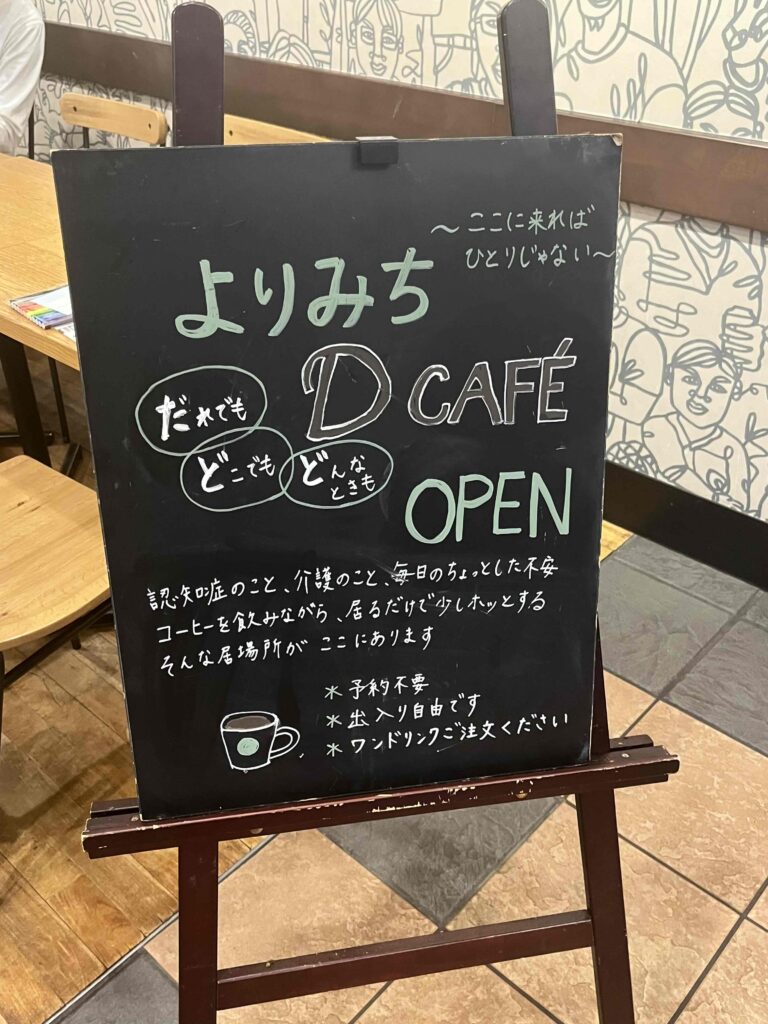 〜ここに来れば
ひとりじゃない〜
よりみち
D CAFÉ
だれでも
どこでも
どんな
ときも
OPEN
認知症のこと、介護のこと、毎日のちょっとした不安
コーヒーを飲みながら、居るだけで少しホッとする
そんな居場所が ここにあります
＊予約不要
＊出入り自由です
＊ワンドリンクご注文ください